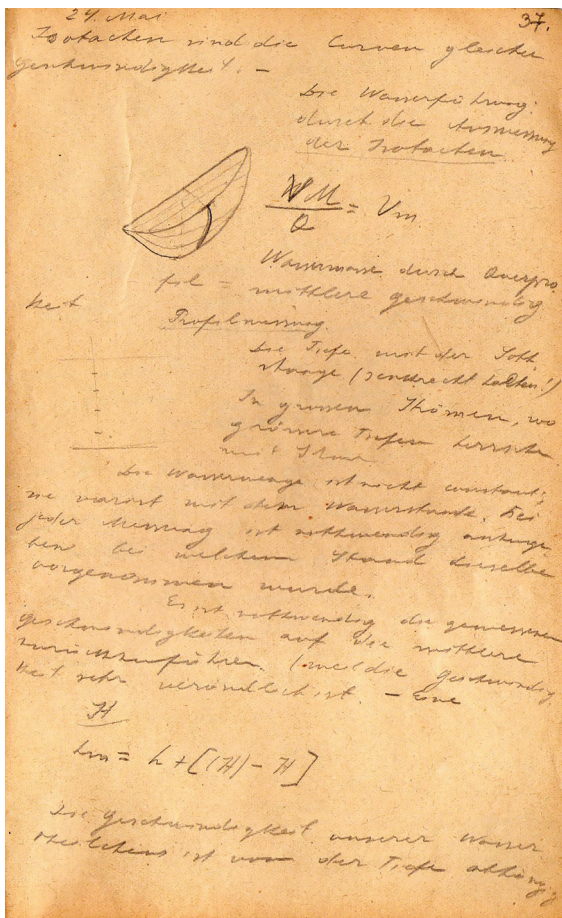 24. Mai
37.
Isotachen sind die Curven gleicher
Geschwindigkeit. –
Die Wasserführung
durch die Ausmessung
der Isotachen.
WM / Q = Vm
Wassermasse durch Querpro
fil = mittlere Geschwindig
keit
Profilmessung.
Die Tiefe mit der Soth
stange (senkrecht halten!)
In grossen Strömen, wo
grössere Tiefen herrschen
mit
Die Wassermenge ist nicht constant;
sie variirt mit dem Wasserstande. Bei
jeder Messung ist nothwendig anzuge
ben bei welchem Stand dieselbe
vorgenommen wurde.
Es ist nothwendig die gemessenen
Geschwindigkeiten auf die mittlere
zurückzuführen. (weil die Geschwindig
keit sehr veründlich ist. – Eine
H
hm = h + [(H) – H]
Die Geschwindigkeit unserer Wasser
theilchens ist von der Tiefe abhängig